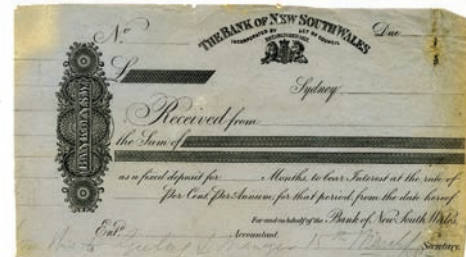 No.
THE BANK OF NEW SOUTH WALES
Due
INCORPORATED BY ACT OF COUNCIL
£
Sydney
Received from
the Sum of
BANK OF N.S.W.
as a fixed deposit for Months, to bear Interest at the rate of
Per Cent, Per Annum, for that period, from the date hereof
For and on behalf of the Bank of New South Wales.
Entd.
Accountant.
Secretary.
15th March